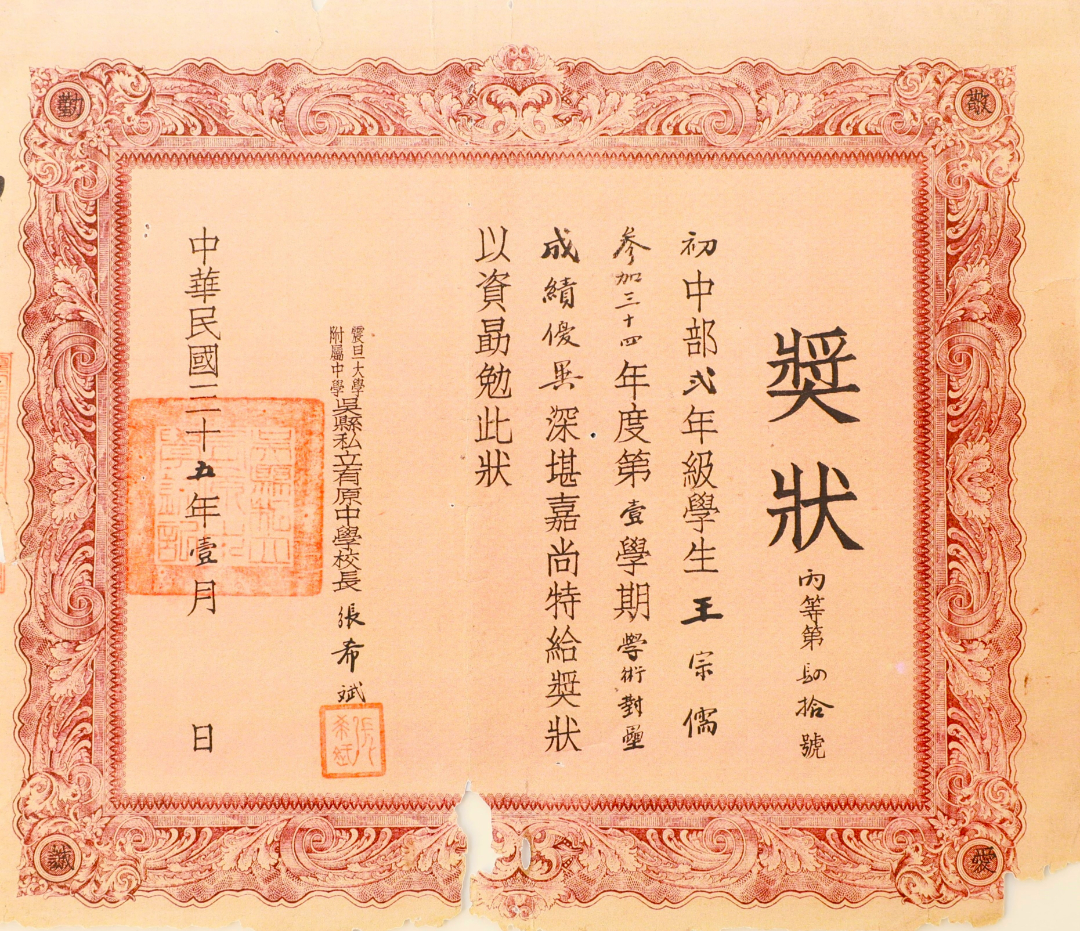 獎狀
丙等第肆拾號
初中部弍年級學生王宗儒
參加三十四年度第壹學期學術對壘
成績優異深堪嘉尚特給獎狀
以資勗勉此狀
震旦大學
附屬中學
吳縣私立有原中學校長張希斌
張希斌
中華民國三十五年壹月 日
敬
勤
愛
誠